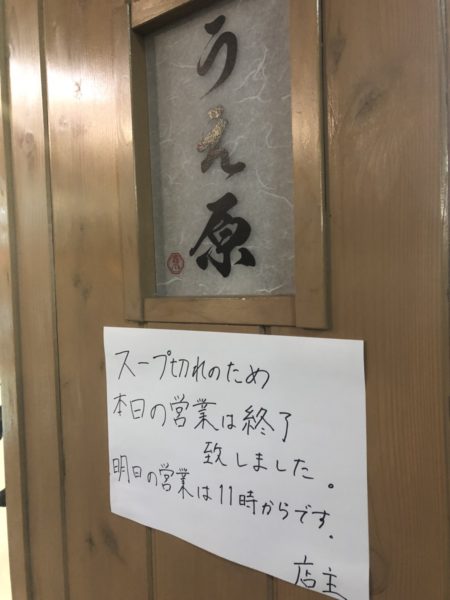 うえ原
スープ切れのため
本日の営業は終了
致しました。
明日の営業は11時からです.
店主